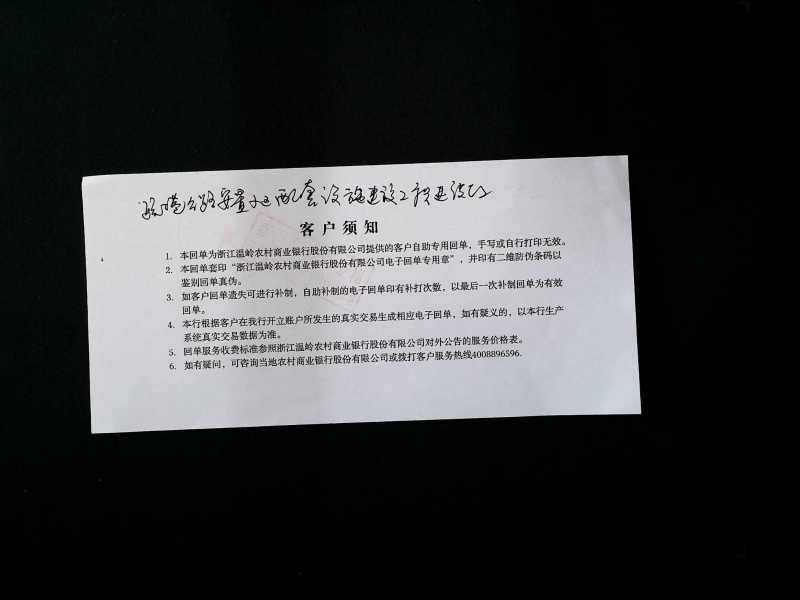 安置小区配套设施建设工程
客户须知
1. 本回单为浙江温岭农村商业银行股份有限公司提供的客户自助专用回单，手写或自行打印无效。
2. 本回单套印“浙江温岭农村商业银行股份有限公司电子回单专用章”，并印有二维防伪条码以
鉴别回单真伪。
3. 如客户回单遗失可进行补制，自助补制的电子回单印有补打次数，以最后一次补制回单为有效
回单。
4. 本行根据客户在我行开立账户所发生的真实交易生成相应电子回单，如有疑义的，以本行生产
系统真实交易数据为准。
5. 回单服务收费标准参照浙江温岭农村商业银行股份有限公司对外公告的服务价格表。
6. 如有疑问，可咨询当地农村商业银行股份有限公司或拨打客户服务热线4008896596.